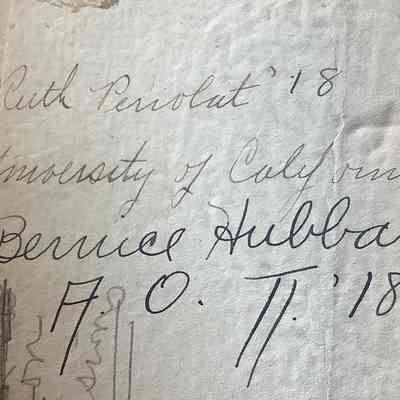 Ruth Periolat '18
University of Californ
Bernice Hubba
A. O. Π. '18